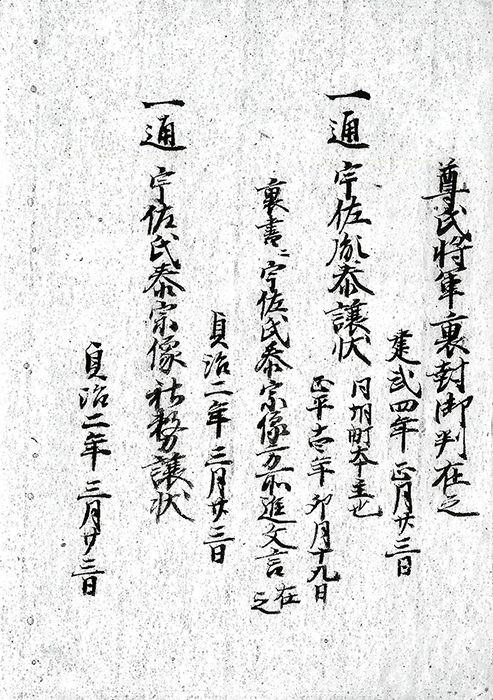 尊氏将軍裏封御判在之
建武四年正月廿三日
一通 宇佐胤泰譲状
正平壱年卯月十九日
裏書ニ宇佐氏泰宗像方所進文言在之
貞治二年三月廿三日
一通 宇佐氏泰宗像社務譲状
貞治二年三月廿三日